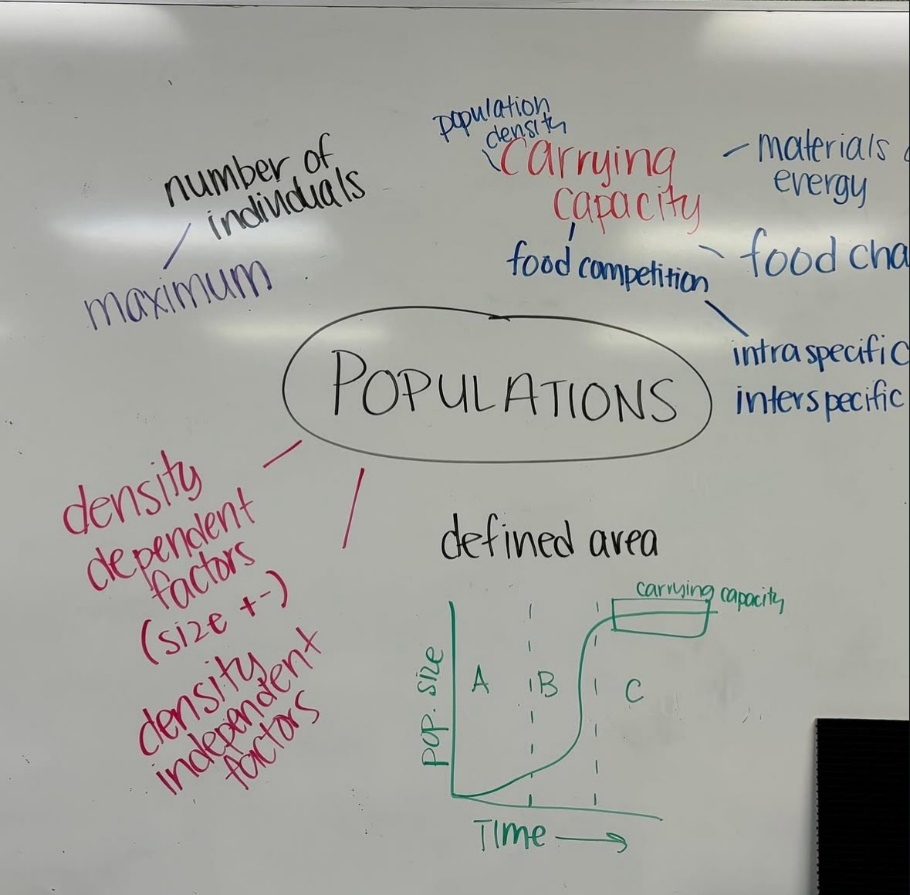 number of
individuals
maximum
population
density
carrying
capacity
materials
energy
food competition
food cha
intraspecific
interspecific
POPULATIONS
density
dependent
factors
(size +-)
density
independent
factors
defined area
carrying capacity
pop. size
A
B
C
Time